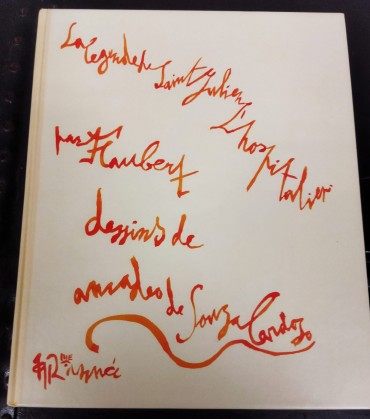 La légende de Saint Julien
L'hospitalier
par Flaubert
dessins de
amadeo de Souza Cardozo